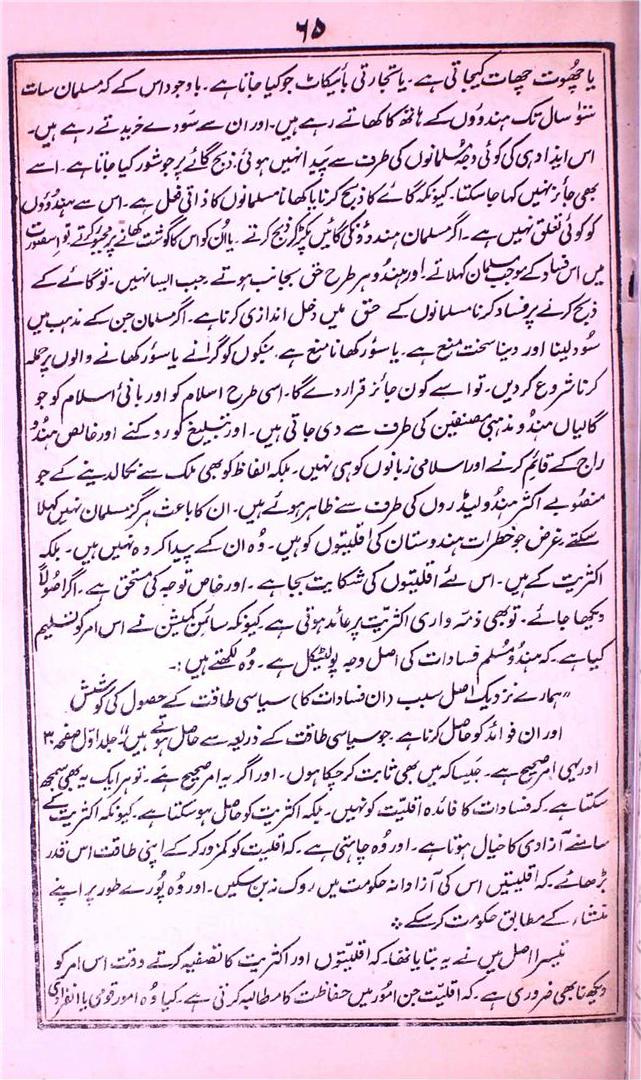 ۶۵
یا چُھوت چھات کیجاتی ہے۔ یا تجارتی بائیکاٹ جو کیا جاتا ہے۔ باوجود اس کے کہ مسلمان سات
سَو سال تک ہندوؤں کے ہاتھ کا کھاتے رہے ہیں۔ اور ان سے سَودے خریدتے رہے ہیں۔
اس ایذا دہی کی کوئی وجہ مسلمانوں کی طرف سے پَیدا نہیں ہوئی۔ ذبح گائے پر جو شور کیا جاتا ہے۔ اسے
بھی جائز نہیں کہا جا سکتا۔ کیونکہ گائے کا ذبح کرنا یا کھانا مسلمانوں کا ذاتی فعل ہے۔ اس سے ہندوؤں
کو کوئی تعلق نہیں ہے۔ اگر مسلمان ہندوؤنکی گائیں پکڑ کر ذبح کرتے۔ یا اُن کو اس کا گوشت کھانے پر مجبور کرتے تو اِس صورت
میں اس فساد کے موجب مسلمان کہلاتے۔ اور ہندو ہر طرح حق بجانب ہوتے۔ جب ایسا نہیں۔ تو گائے کے
ذبح کرنے پر فساد کرنا مسلمانوں کے حق میں دخل اندازی کرنا ہے۔ اگر مسلمان جن کے مذہب میں
سُود لینا اور دینا سخت منع ہے۔ یا سؤر کھانا منع ہے۔ بنکوں کو گرانے یا سؤر کھانے والوں پر حملہ
کرنا شروع کر دیں۔ تو اسے کون جائز قرار دے گا۔ اسی طرح اسلام کو اور بانیٔ اسلام کو جو
گالیاں ہندو مذہبی مصنفین کی طرف سے دی جاتی ہیں۔ اور تبلیغ کو روکنے اور خالص ہندو
راج کے قائم کرنے اور اسلامی زبانوں کو ہی نہیں۔ بلکہ الفاظ کو بھی ملک سے نکالدینے کے جو
منصوبے اکثر ہندو لیڈروں کی طرف سے ظاہر ہوئے ہیں۔ ان کا باعث ہرگز مسلمان نہیں کہلا
سکتے۔ غرض جو خطرات ہندوستان کی اقلیتوں کو ہیں۔ وُہ ان کے پیدا کردہ نہیں ہیں۔ بلکہ
اکثریت کے ہیں۔ اس لئے اقلیتوں کی شکایت بجا ہے۔ اور خاص توجہ کی مستحق ہے۔ اگر اصُولاً
دیکھا جائے۔ تو بھی ذمّہ واری اکثریت پر عائد ہوتی ہے۔ کیونکہ سائمن کمیشن نے اس امر کو تسلیم
کیا ہے۔ کہ ہندو مُسلم فسادات کی اصل وجہ پولٹیکل ہے۔ وُہ لکھتے ہیں:۔
"ہمارے نزدیک اصل سبب (ان فسادات کا) سیاسی طاقت کے حصول کی کوشش
اور ان فوائد کو حاصل کرنا ہے۔ جو سیاسی طاقت کے ذریعہ سے حاصل ہوتے ہیں"۔ جلد اوّل صفحہ ۳۰
اور یہی امر صحیح ہے۔ جیسا کہ میں بھی ثابت کر چکا ہوں۔ اور اگر یہ امر صحیح ہے۔ تو ہر ایک یہ بھی سمجھ
سکتا ہے۔ کہ فسادات کا فائدہ اقلیّت کو نہیں۔ بلکہ اکثریت کو حاصل ہو سکتا ہے۔ کیونکہ اکثریت کے
سامنے آزادی کا خیال ہوتا ہے۔ اور وُہ چاہتی ہے۔ کہ اقلیت کو کمزور کر کے اپنی طاقت اس قدر
بڑھائے۔ کہ اقلیتیں اس کی آزادانہ حکومت میں روک نہ بن سکیں۔ اور وُہ پُورے طور پر اپنے
منشاء کے مطابق حکومت کر سکے ؞
تیسرا اصل میں نے یہ بتایا تھا۔ کہ اقلیّتوں اور اکثریت کا تصفیہ کرتے وقت اس امر کو
دیکھنا بھی ضروری ہے۔ کہ اقلیت جن امور میں حفاظت کا مطالبہ کرتی ہے۔ کیا وُہ امور قومی یا انفرادی